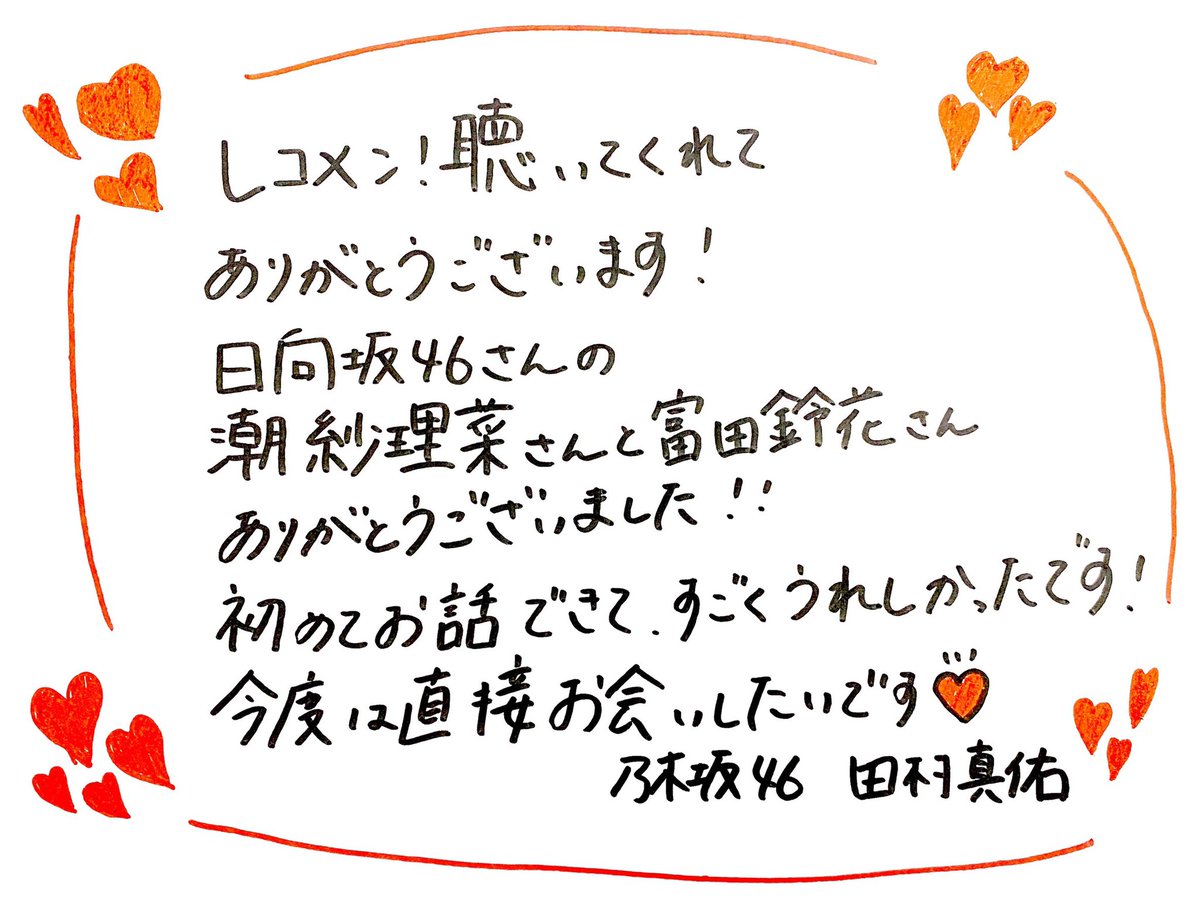 レコメン!聴いてくれて
ありがとうございます!
日向坂46さんの
潮紗理菜さんと富田鈴花さん
ありがとうございました!!
初めてお話できて、すごくうれしかったです!
今度は直接お会いしたいです
乃木坂46 田村真佑